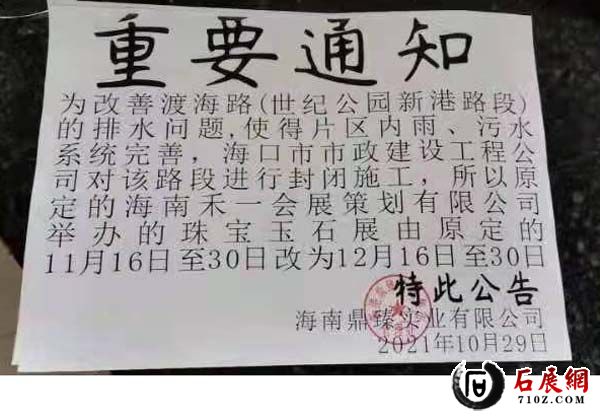 重要通知
为改善渡海路(世纪公园新港路段)
的排水问题,使得片区内雨、污水
系统完善，海口市市政建设工程公
司对该路段进行封闭施工，所以原
定的海南禾一会展策划有限公司
举办的珠宝玉石展由原定的
11月16日至30日改为12月16日至30日
特此公告
海南鼎臻实业有限公司
2021年10月29日
石展網
710Z.COM